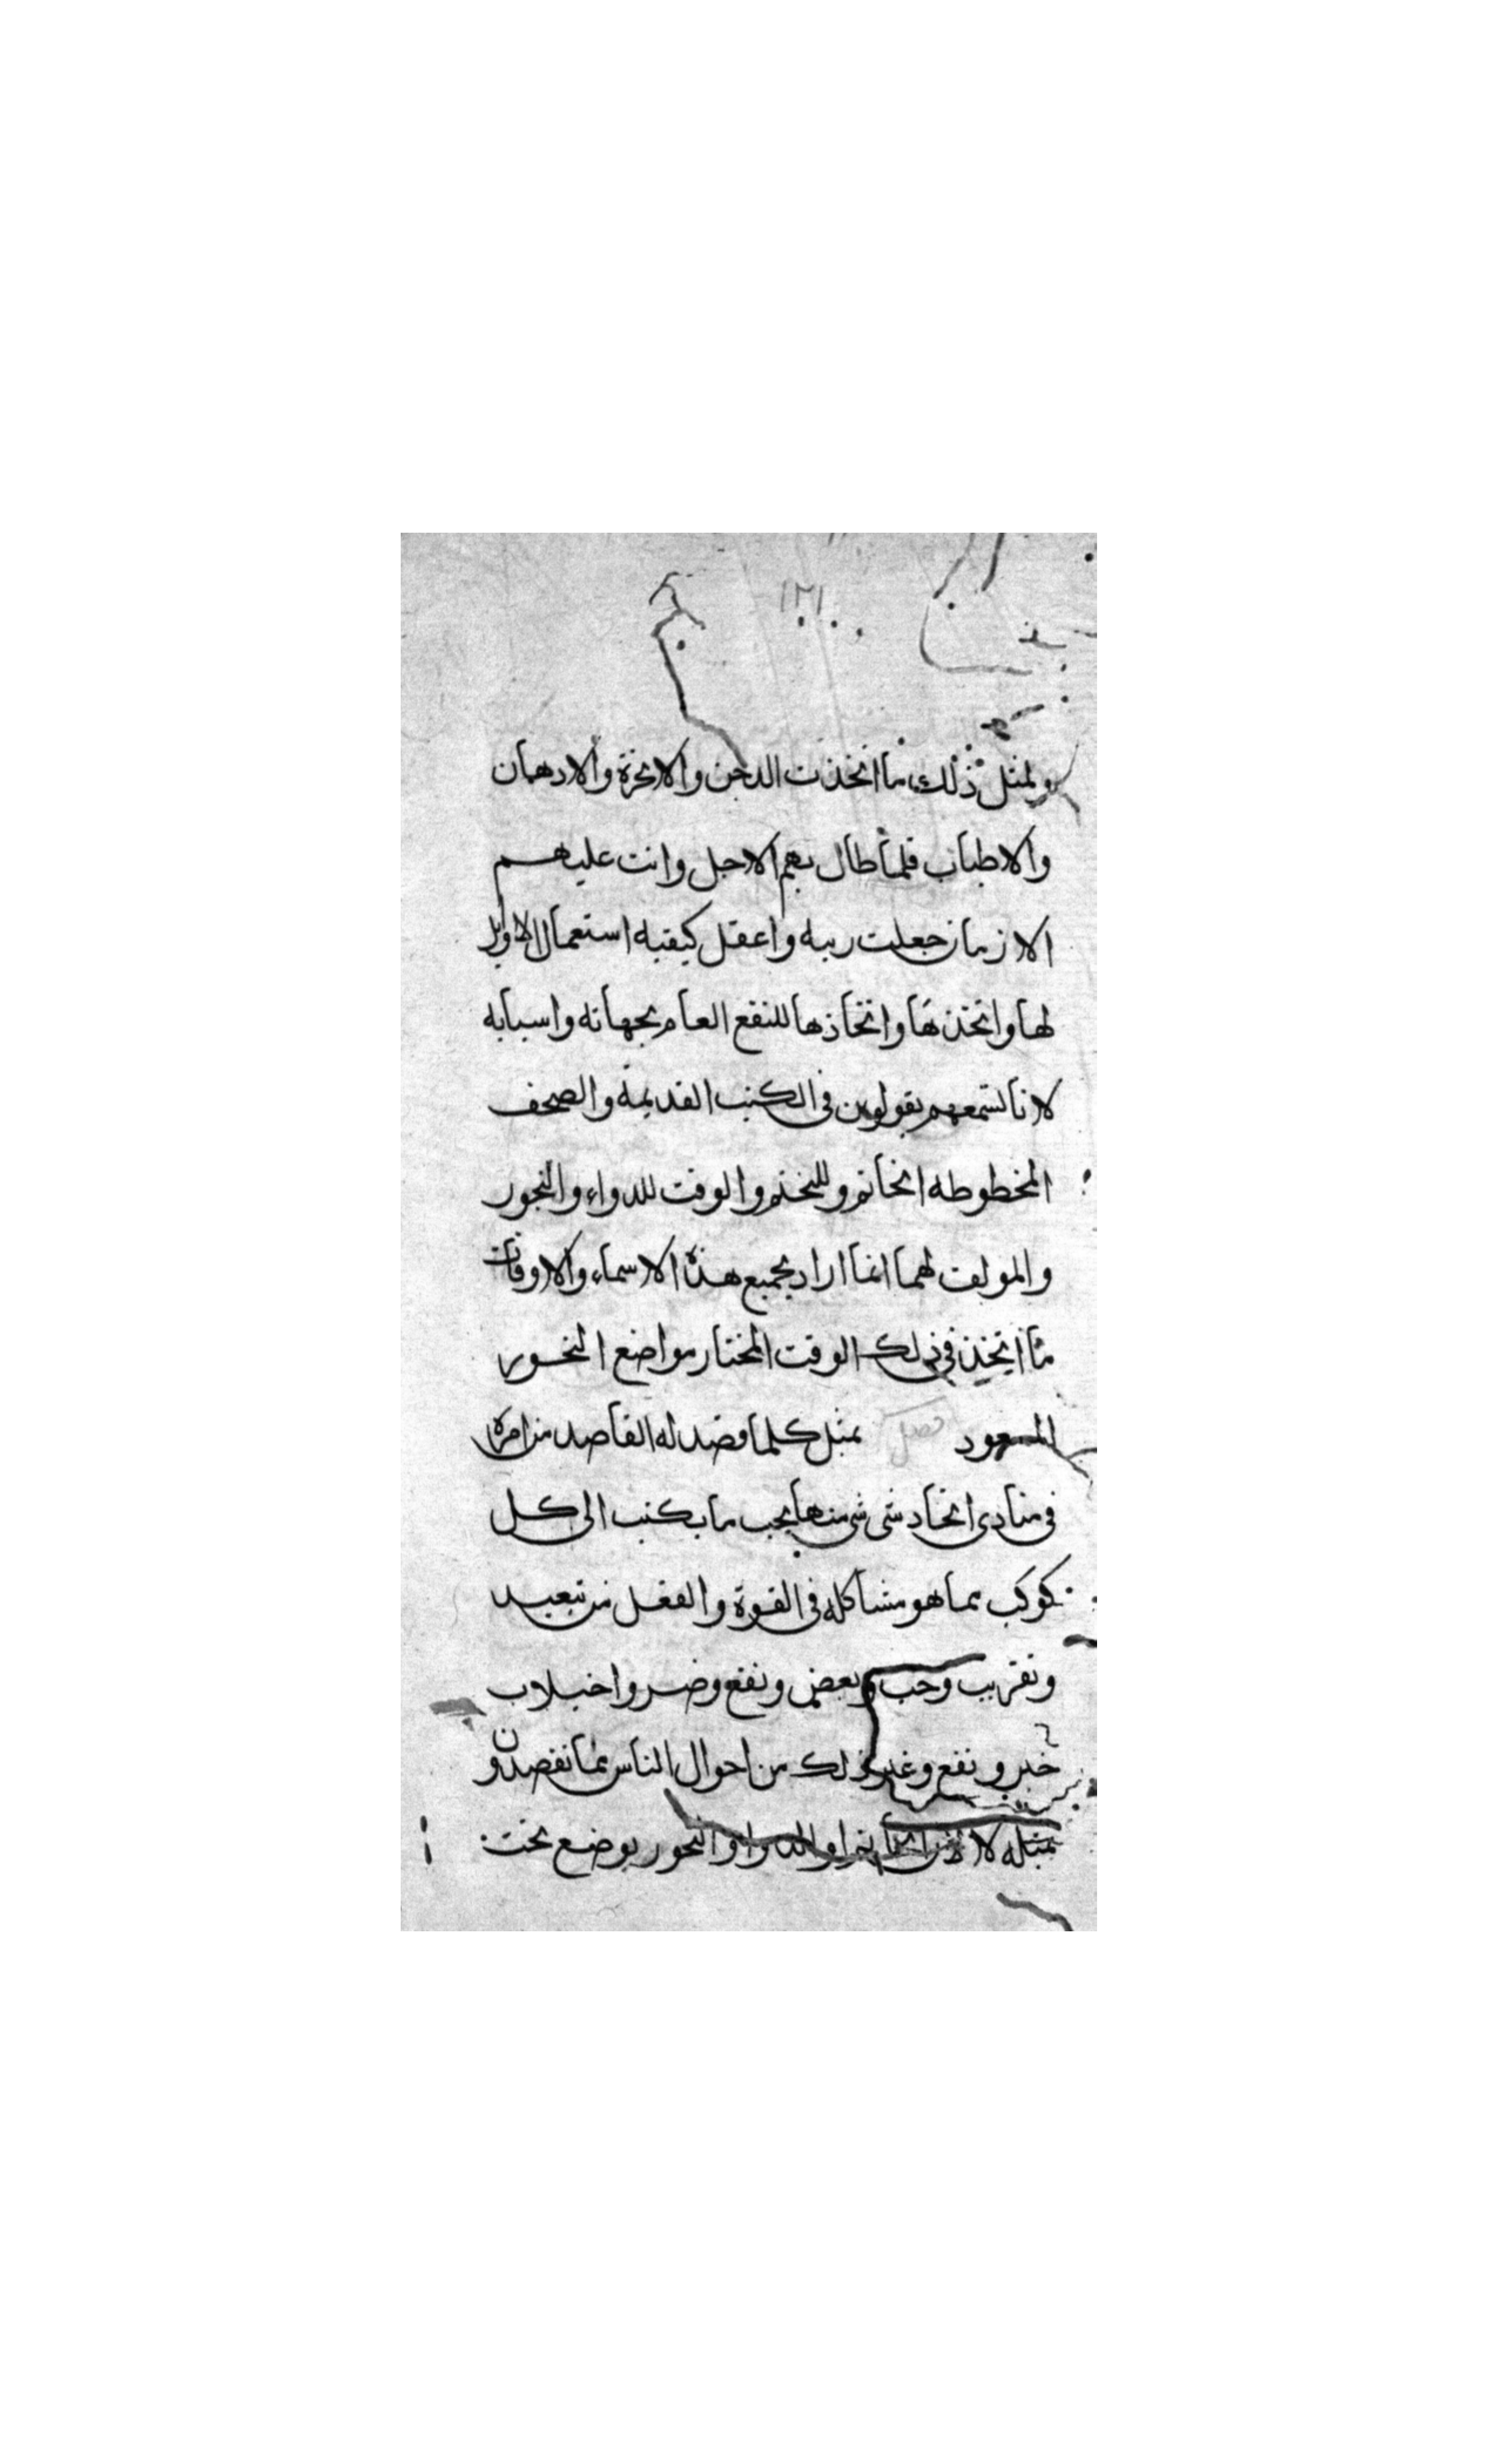 ولمثل ذلك ما اتخذت الدخن والابخرة والادهان
والاطياب فلما طال بهم الاجل وانت عليهم
الازمان جعلت ريبه واعقل كيفيه استعمال الاوايل
لها واتخذ لها واتخاذها للنفع العام بجهاته واسبابه
لانا نسمعهم يقولون في الكتب القديمة والصحف
المخطوطه الخاتم وللختم والوقت للدواء والبخور
والمولفت لهما انما اراد بجميع هذه الاسماء والاوقات
ما اتخذ في ذلك الوقت المختار مواضع البخور
المسعود فصل بمثل كلما قصد له القاصد من امره
في منادى اتخاد شى شى منها يجب ما يكتب الى كل
كوكب بما هو مشاكله في القوة والفعل من تبعيد
وتقريب وحب وبعض ونفع وضر واختلاب
خير ونفع وغير ذلك من احوال الناس مما تقصدون
بمثله لان الخاتم او الدواء او البخور يوضع تحت